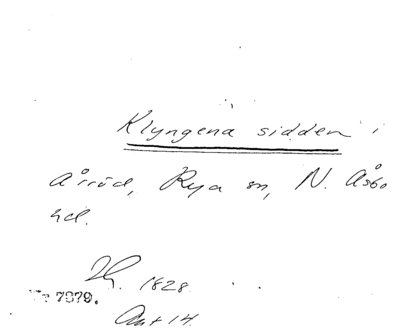 Klyngena sidden i
Årröd, Rya sn, N. Åsbo
hd.
1828
7079.
Ant 14